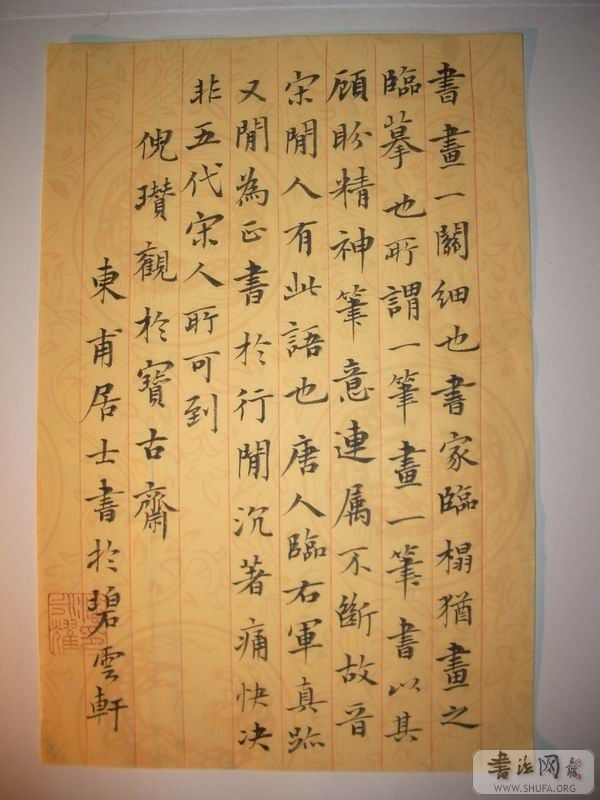 書畫一關細也書家臨榻猶畫之
臨摹也所謂一筆畫一筆書以其
顧盼精神筆意連属不斷故晋
宋閒人有此語也唐人臨右軍真跡
又閒為正書於行閒沉著痛快决
非五代宋人所可到
倪瓚觀於寶古齋
東甫居士書於碧雲軒
書法网
WWW.SHUFA.ORG